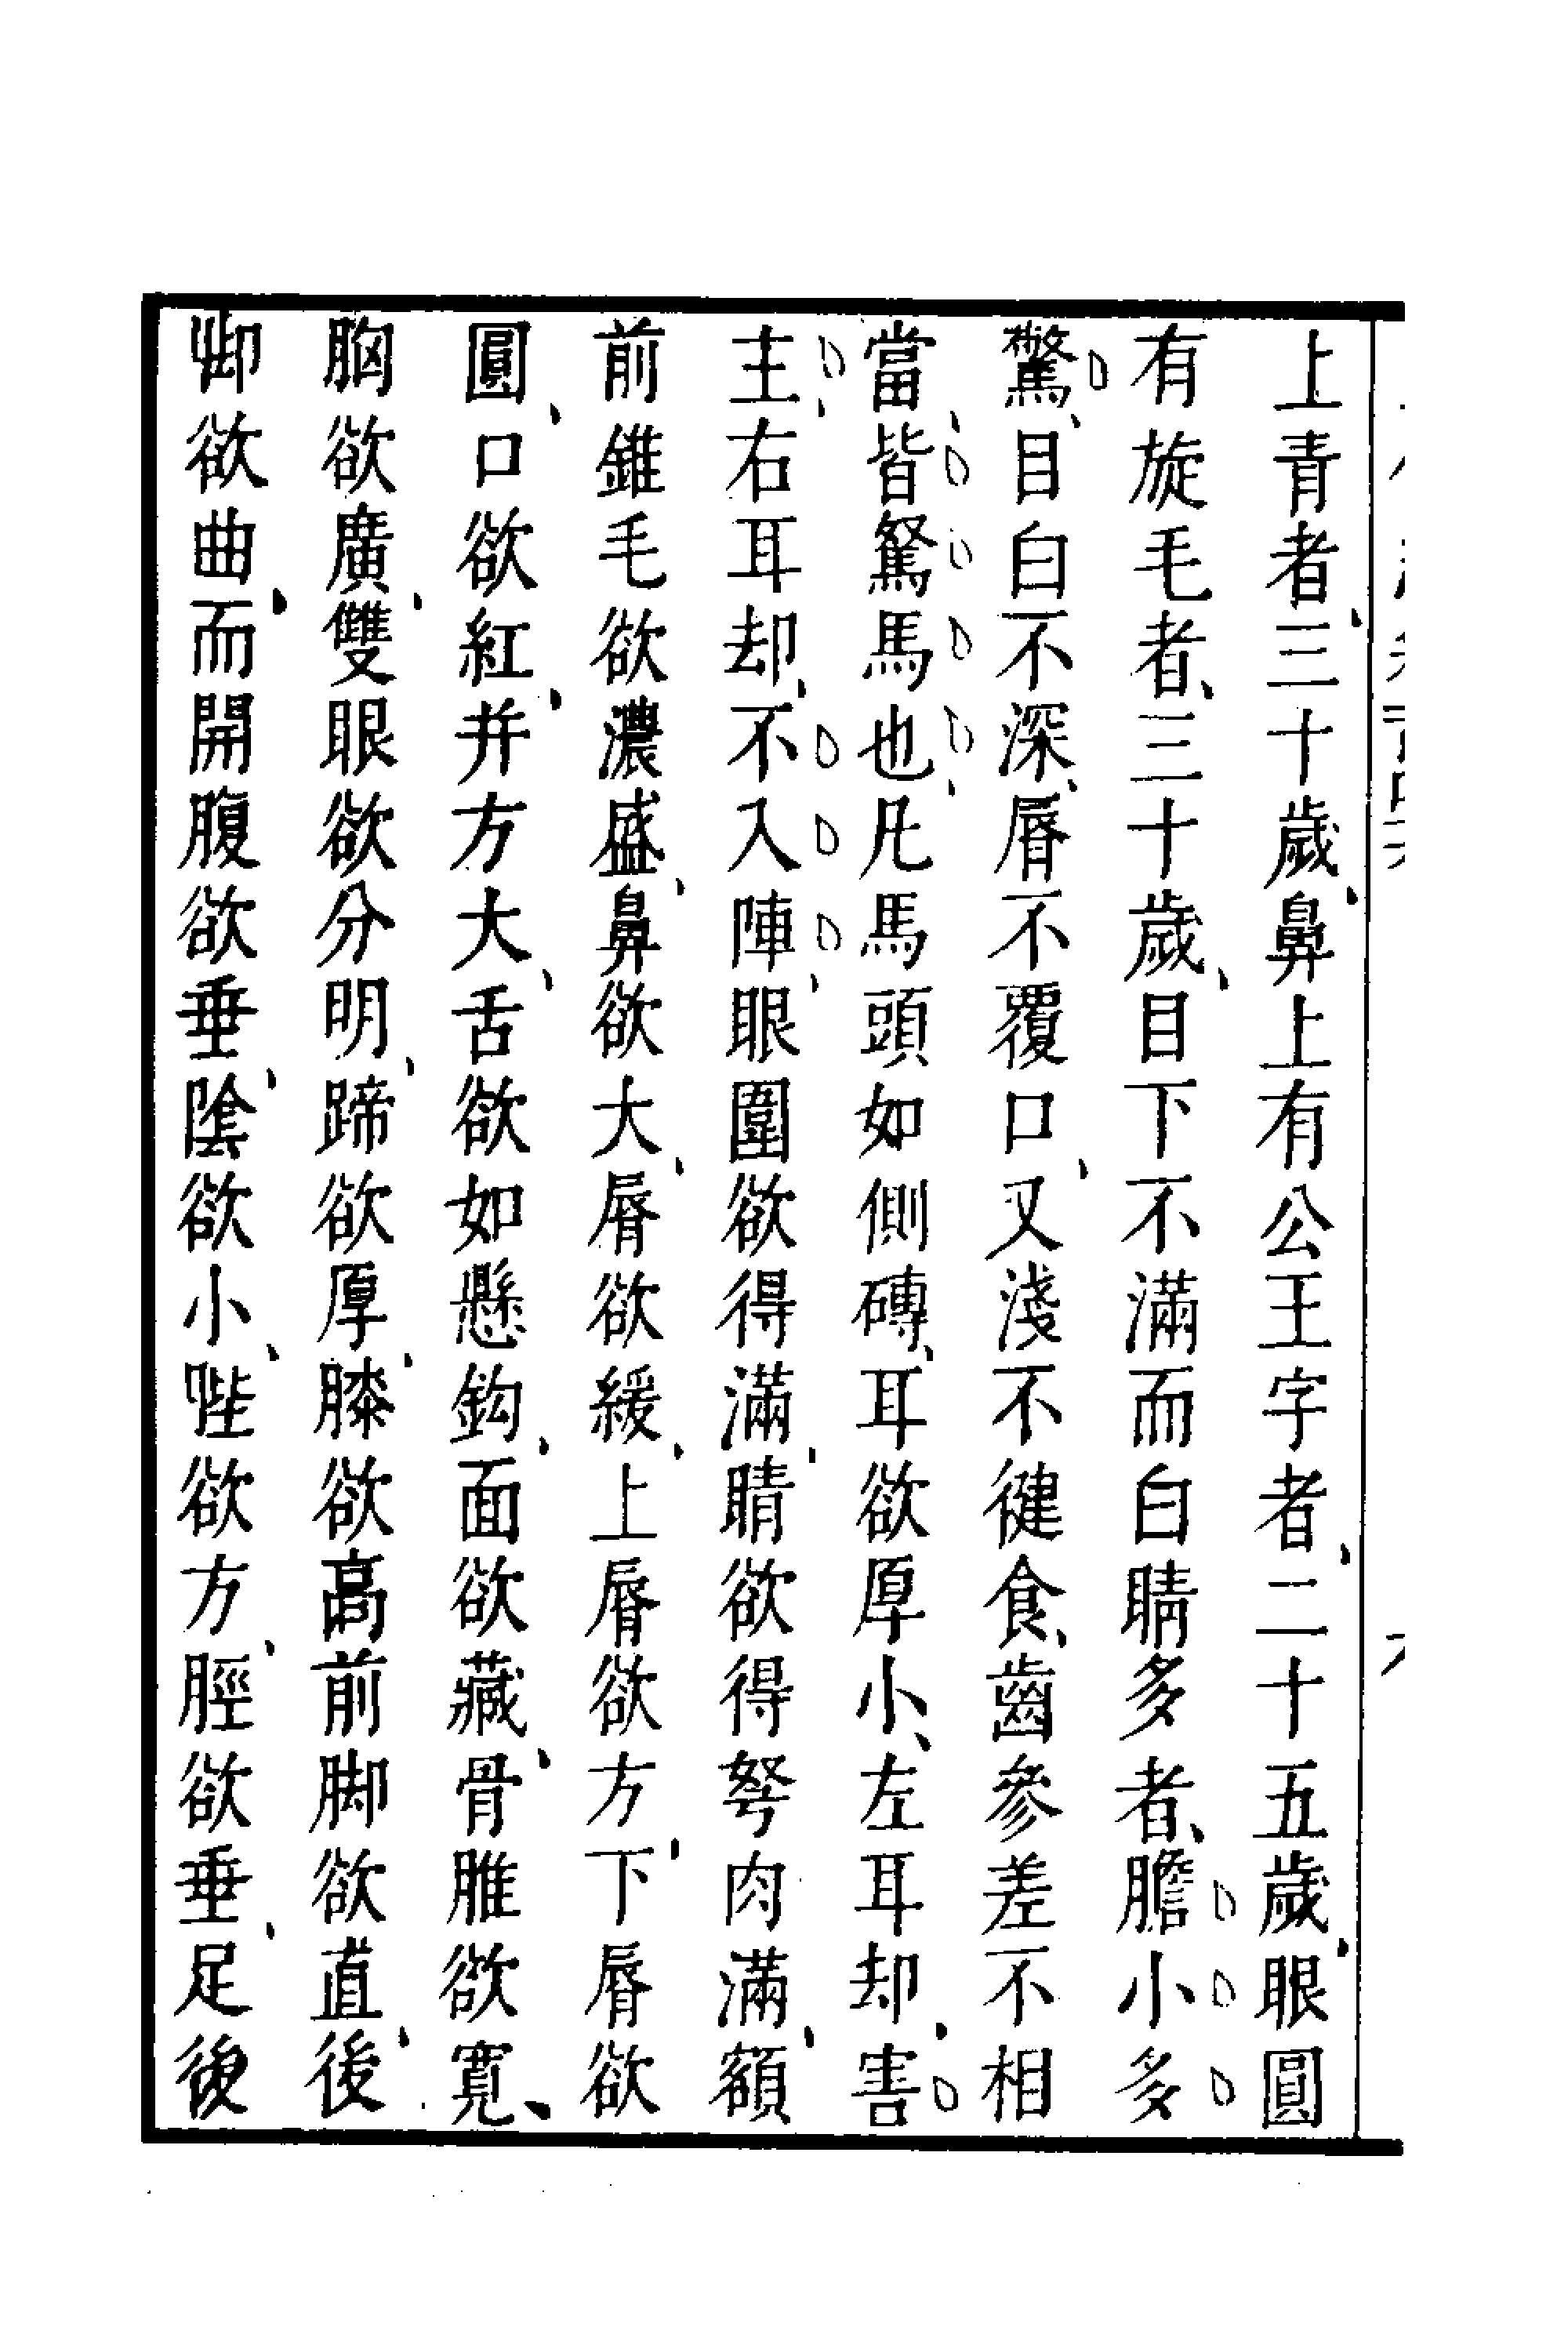 上青者三十歲鼻上有公王字者二十五歲眼圓
有旋毛者三十歲目下不滿而白睛多者膽小多
驚目白不深脣不覆口又淺不健食齒參差不相
當皆駑馬也凡馬頭如側磚耳欲厚小左耳却害
主右耳却不入陣眼圍欲得滿睛欲得弩肉滿額
前錐毛欲濃盛鼻欲大脣欲緩上脣欲方下脣欲
圓口欲紅并方大舌欲如懸鈎面欲藏骨脽欲寬
胸欲廣雙眼欲分明蹄欲厚膝欲高前脚欲直後
卸欲曲而開腹欲垂陰欲小䏶欲方脛欲垂足後